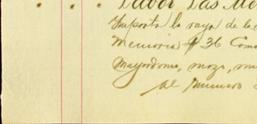 Labor Las Mo
Importa la raya de la
Memoria # 36 Com
Mayordomo, mozo, m
al Numero